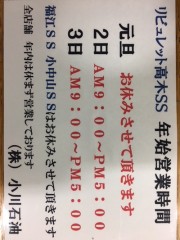 リビュレット高木SS 年始営業時間
元旦 お休みさせて頂きます
2日 AM9:00~PM5:00
3日 AM9:00~PM5:00
福江SS 小中山SSはお休みさせて頂きます
全店舗 年内は休まず営業しております
(株)小川石油